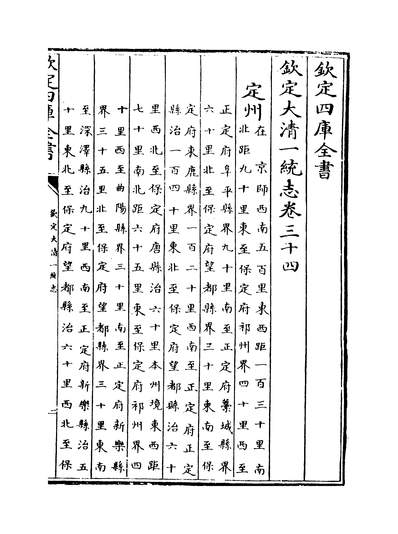 欽定四庫全書
欽定大清一統志卷三十四
定州 在 京師西南五百里東西距一百三十里南
北距九十里東至保定府祁州界四十里西至
正定府阜平縣界九十里南至正定府藁城縣界
六十里北至保定府望都縣界三十里東南至保
定府束鹿縣界一百二十里西南至正定府正定
縣治一百四十里東北至保定府望都縣治六十
里西北至保定府唐縣治六十里本州境東西距
七十里南北距六十五里東至保定府祁州界四
十里西至曲陽縣界三十里南至正定府新樂縣
界三十五里北至保定府望都縣界三十里東南
至深澤縣治九十里西南至正定府新樂縣治五
十里東北至保定府望都縣治六十里西北至保
欽定四庫全書
欽定大清一統志